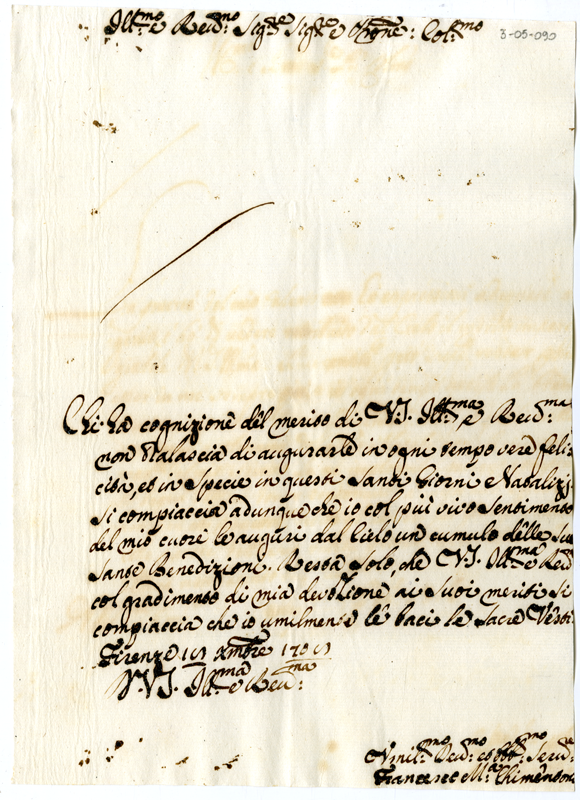 Ill:mo e Reu:mo Sig:re Sig:re e Pron:e Col:mo
3-05-090
Chi hà cognizione del merito di V.S. Ill:ma e Reu:ma
non tralascia di augurarle in ogni tempo vere feli-
cità, et in specie in questi Santi Giorni Natalizi
si compiaccia adunque che io col più vivo sentimento
del mio cuore le auguri dal Cielo un cumulo delle sue
Sante Benedizioni. Resta solo, che V.S. Ill:ma e Reu:
col gradimento di mia devozione ai suoi meriti si
compiaccia che io umilmente le baci le Sacre Vesti
Firenze Xmbre
D. V.S. Ill:ma e Reu:ma
Umil:mo Deu:mo et obb:mo Seru:e
Francesco M:a